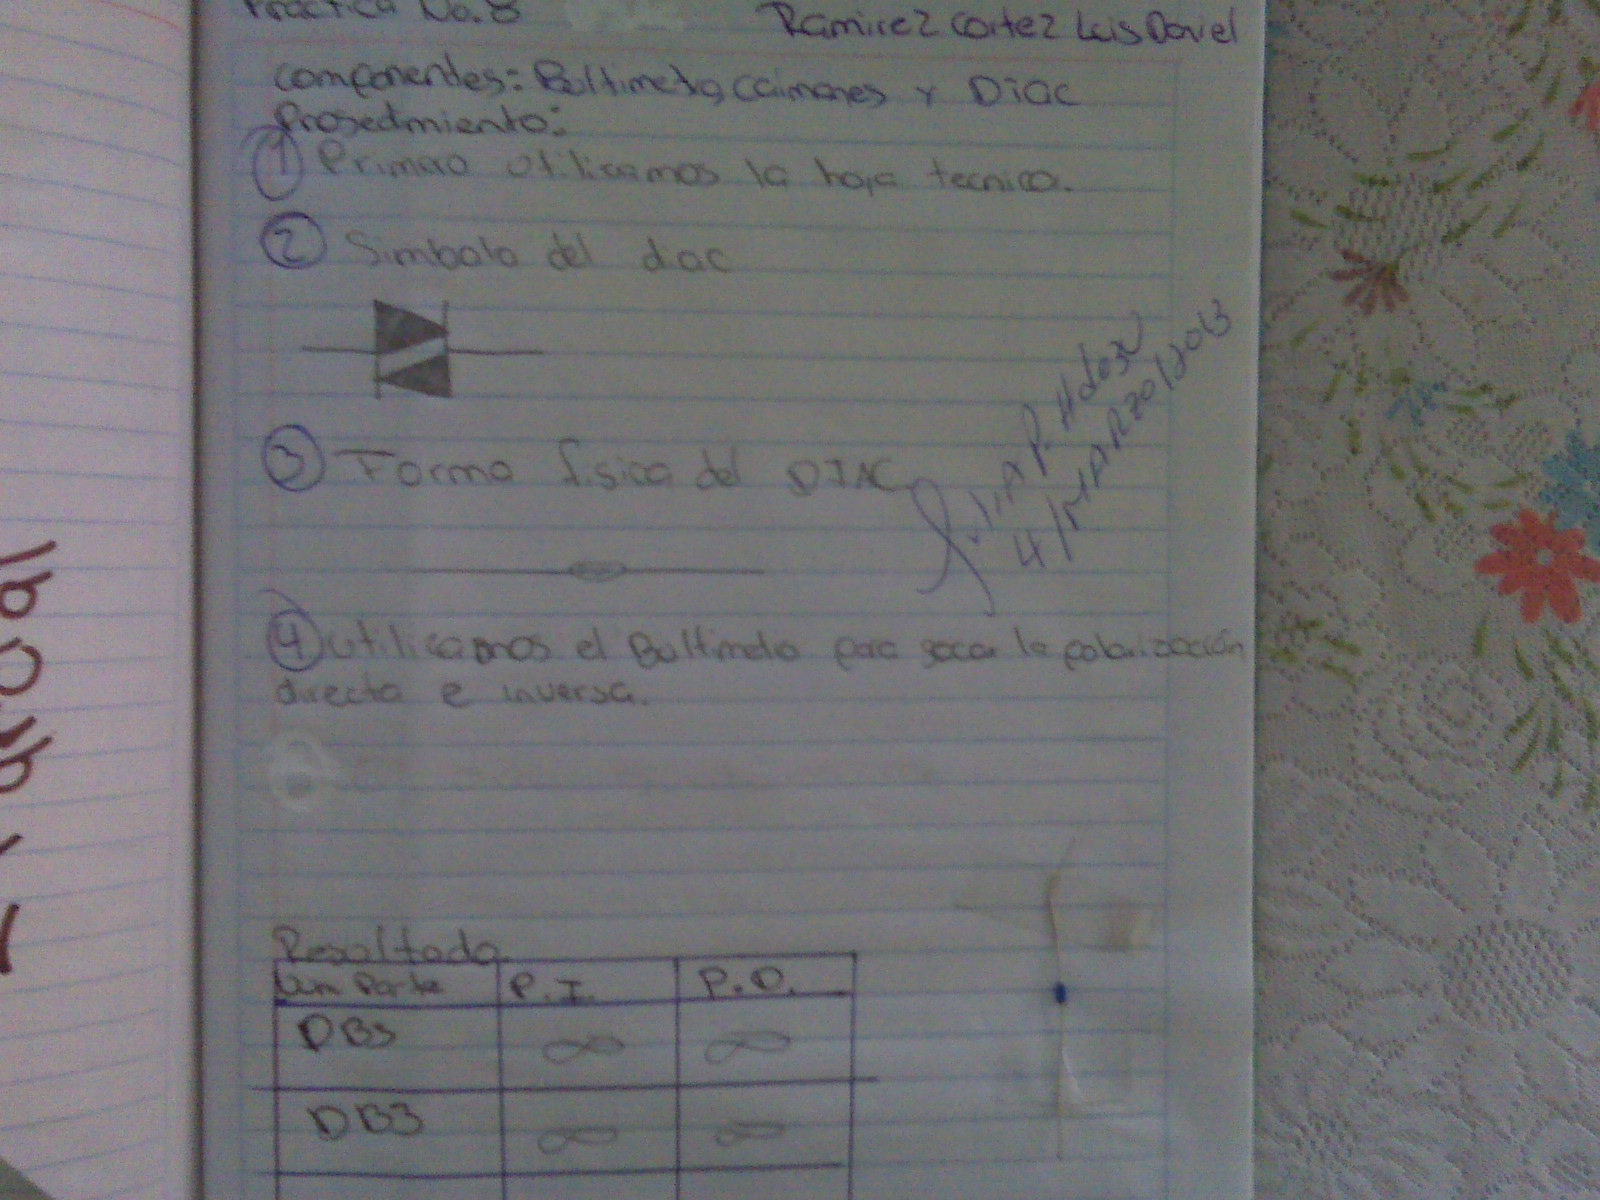 Practica No. 8
Ramirez Cortez Luis Daniel
componentes: Bultimetro, Caimanes y Diac
Prosedimiento:
① Primero utilisamos la hoja tecnica.
② Simbolo del diac
③ Forma fisica del DIAC
4/MARZO/2013
④ utilicamos el Bultimetro para sacar la polarización
directa e inversa.
Resultado
Num Parte P.I. P.D.
DB3 ∞ ∞
DB3 ∞ ∞